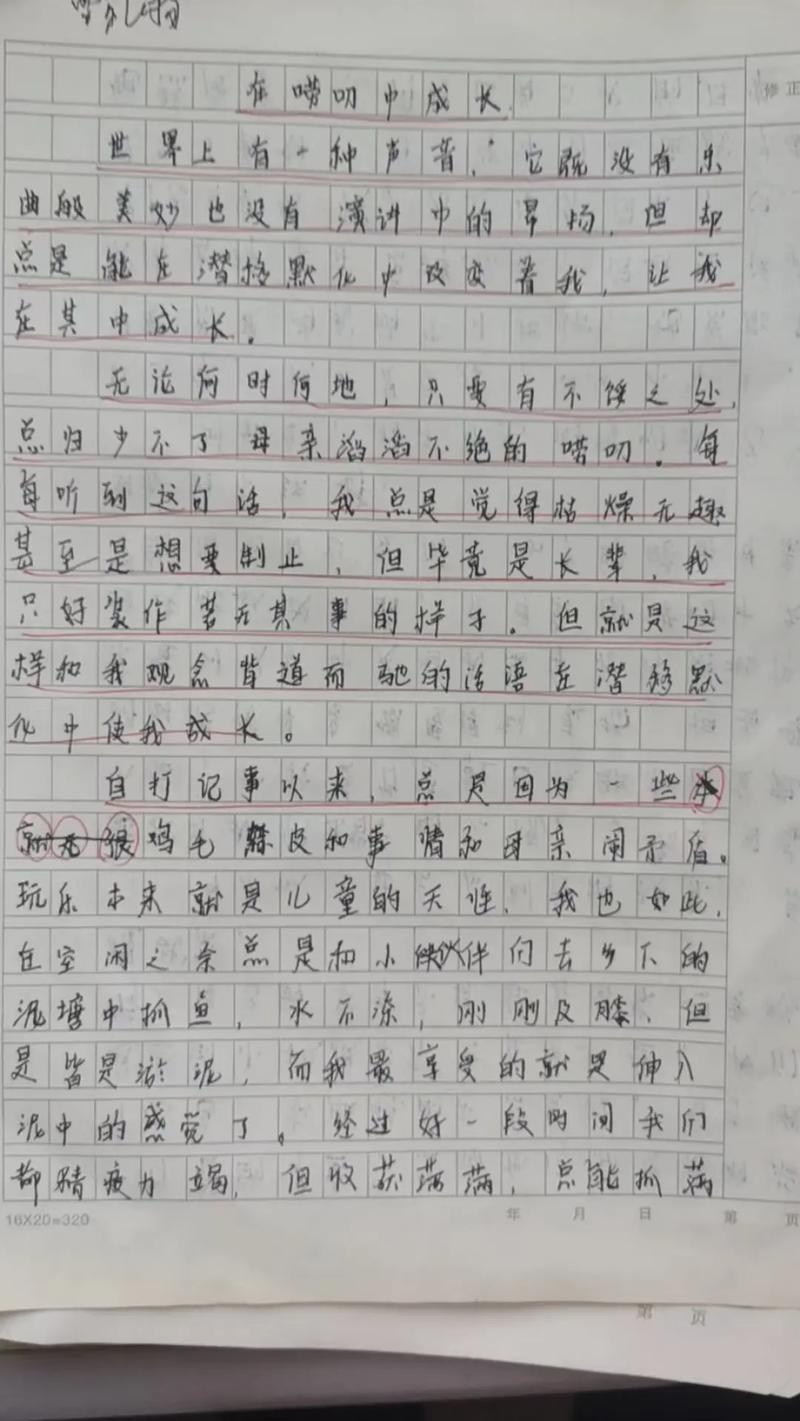 在唠叨中成长
修正
世界上有一种声音，它既没有乐
曲般美妙也没有演讲中的昂扬，但却
总是能在潜移默化中改变着我，让我
在其中成长。
无论何时何地，只要有不馁之处，
总归少不了母亲滔滔不绝的唠叨。每
每听到这句话，我总是觉得枯燥无趣
甚至是想要制止，但毕竟是长辈，我
只好装作若无其事的样子。但就是这
样和我观念背道而驰的话语在潜移默
化中使我成长。
自打记事以来，总是因为一些
鸡毛蒜皮和事情和母亲闹矛盾。
玩乐本来就是儿童的天性，我也如此，
在空闲之余总是和小伙伴们去乡下的
泥塘中抓鱼，水不深，刚刚及膝，但
是皆是淤泥，而我最享受的就是伸入
泥中的感觉了。经过好一段时间我们
都精疲力竭，但收获满满，总能抓满
16X20=320 年 月 日 第 页
第 页